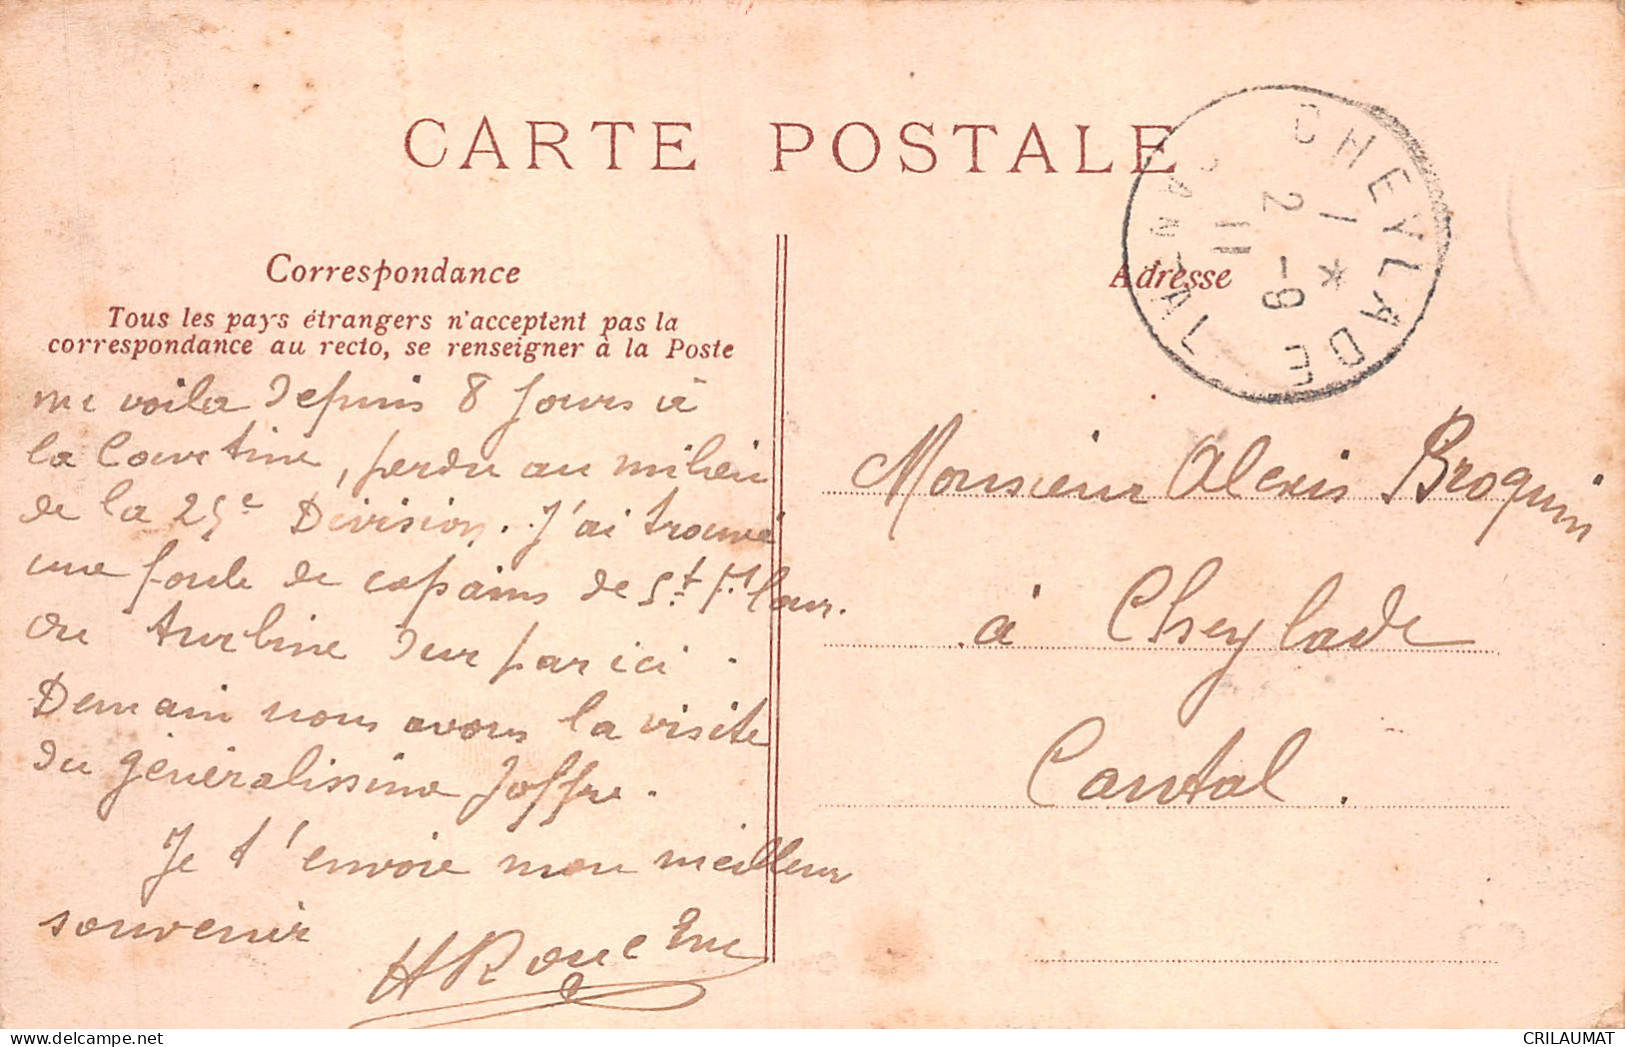 CARTE POSTALE
Correspondance
Tous les pays étrangers n'acceptent pas la
correspondance au recto, se renseigner à la Poste
me voila depuis 8 Jours à
la Courtine, perdu au milieu
de la 25e Division. J'ai trouvé
une foule de copains de St Flour.
On turbine dur par ici.
Demain nous avons la visite
du généralissime Joffre.
Je t'envoie mon meilleur
souvenir
Adresse
CHEYLADE
CANTAL
1 *
2 -9
11
Monsieur Alexis Broquin
à Cheylade
Cantal.
CRILAUMAT